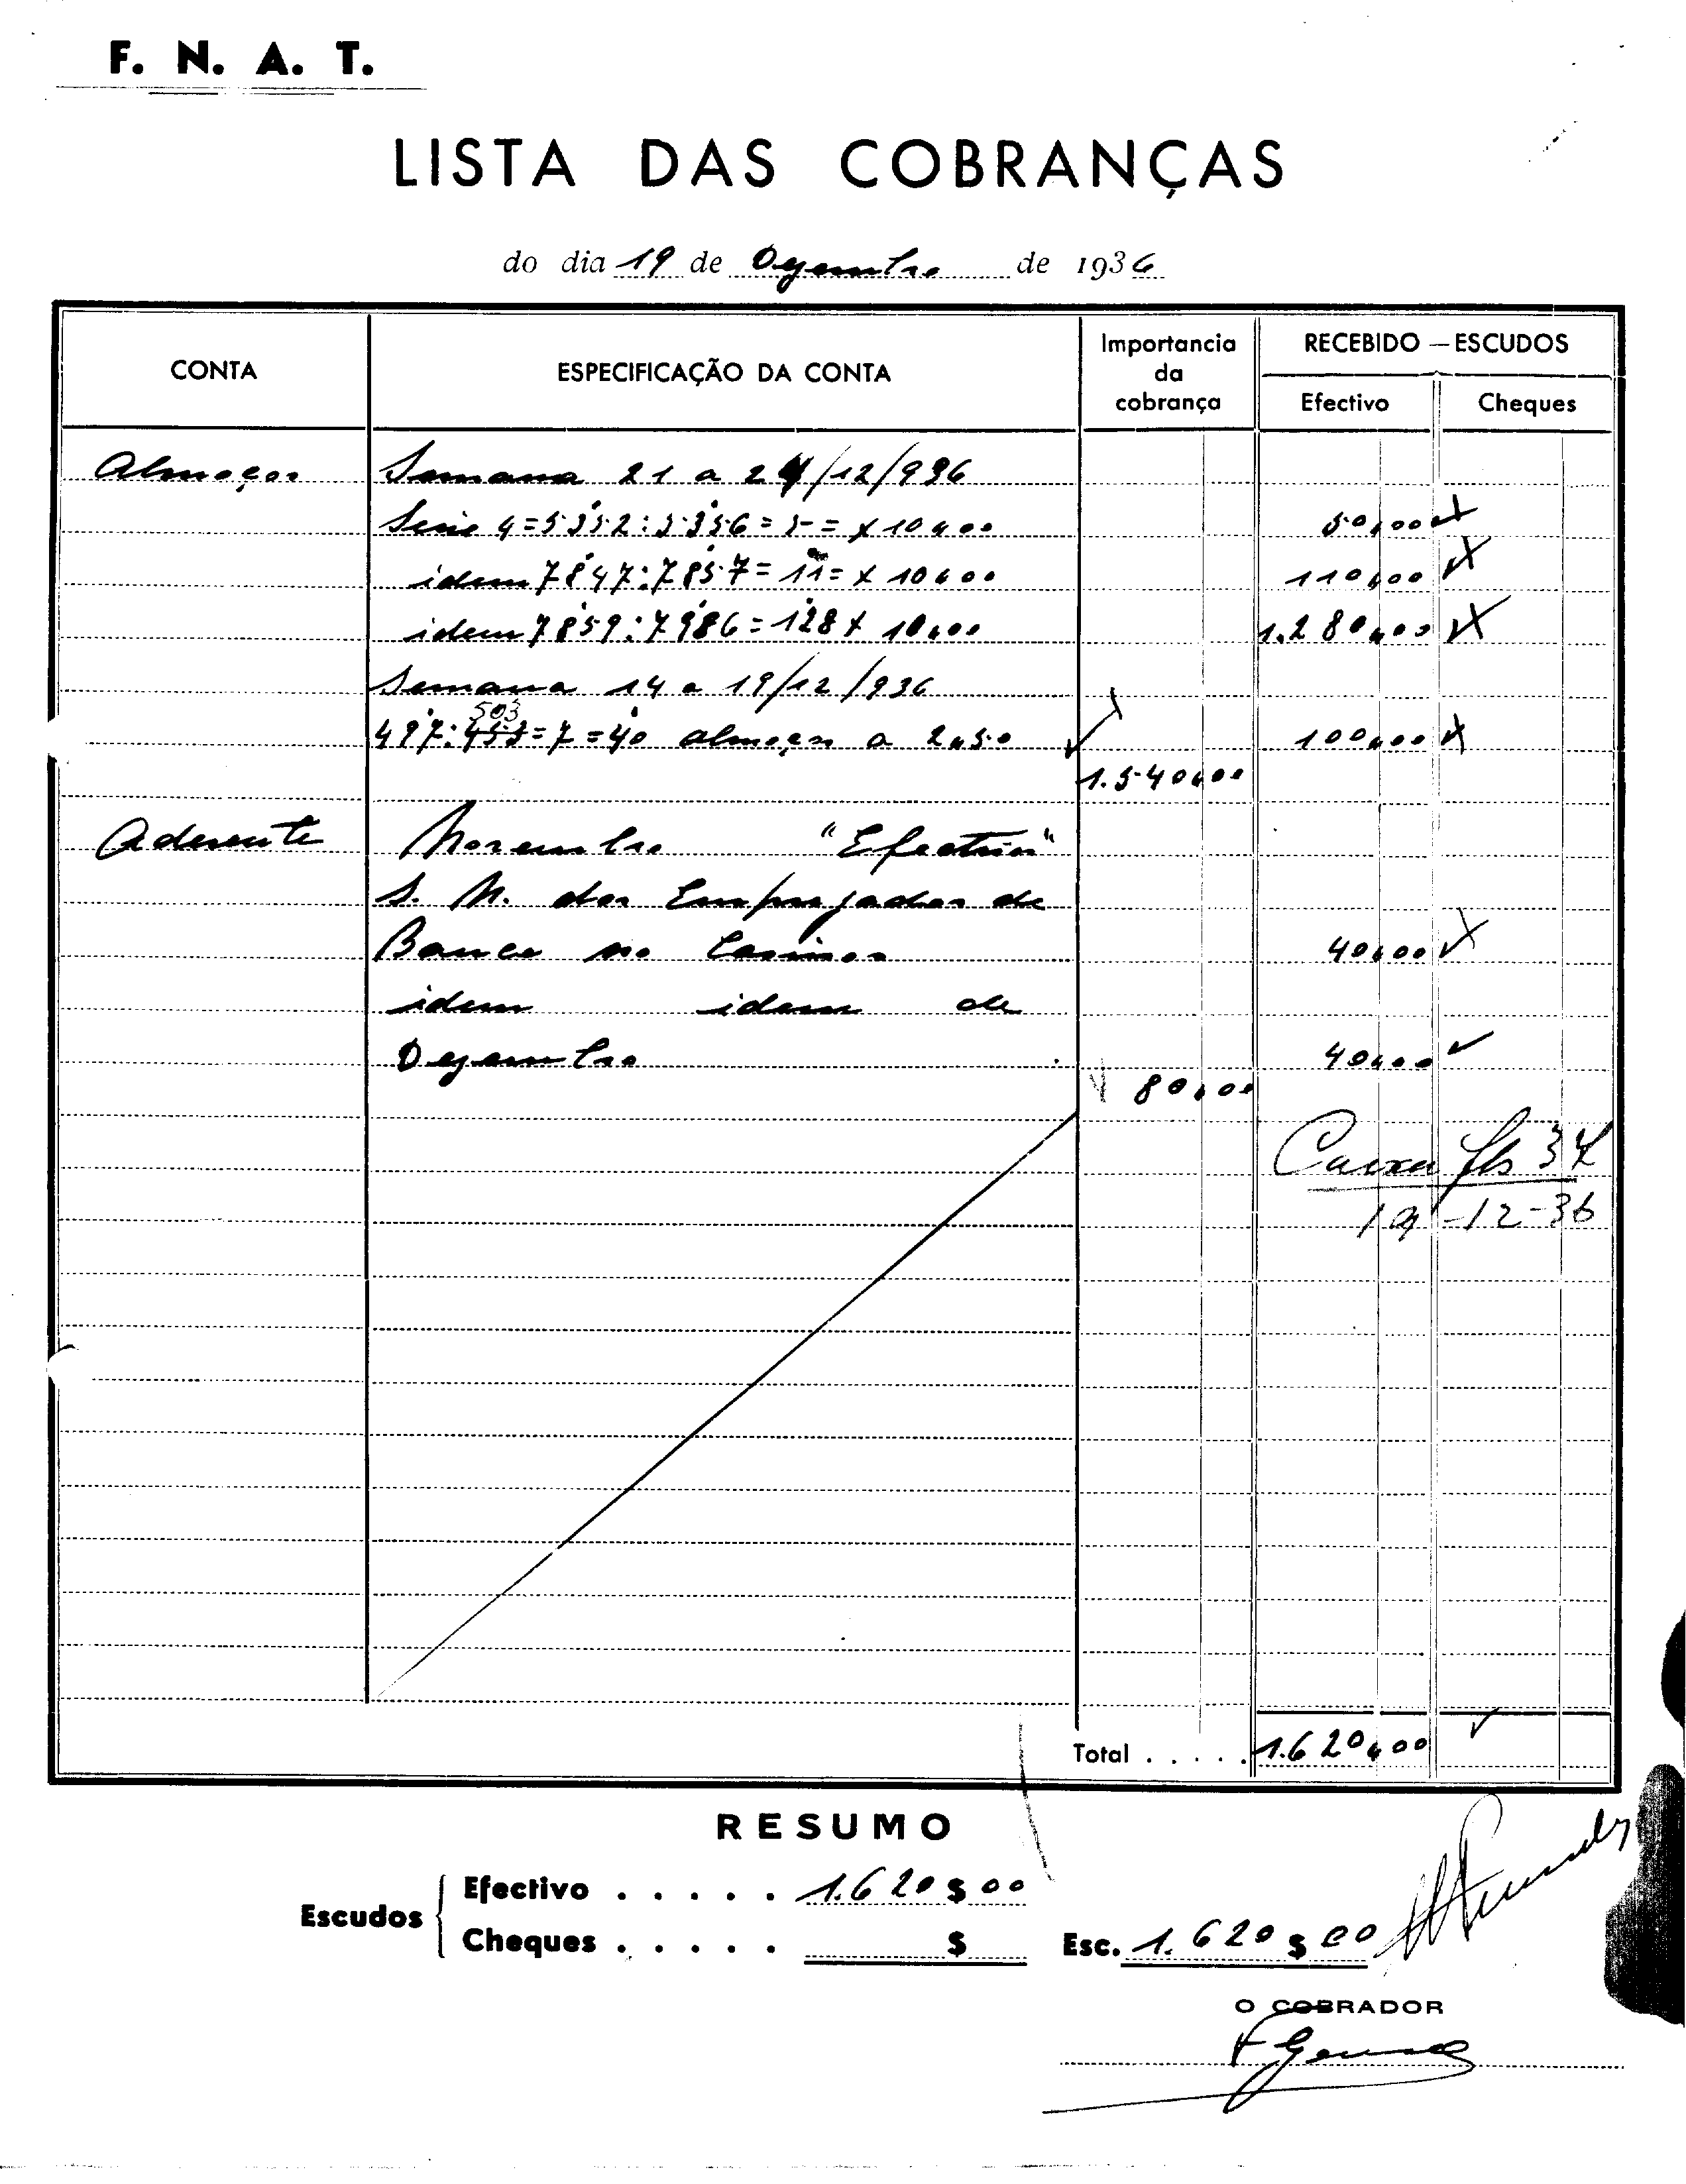 F. N. A. T.
LISTA DAS COBRANÇAS
do dia 19 de Dezembro de 1936
CONTA
ESPECIFICAÇÃO DA CONTA
Importancia da cobrança
RECEBIDO — ESCUDOS
Efectivo
Cheques
Almoços Semana 21 a 24/12/936
Serie 4=5352:5356=5= x 10$00 50$00
idem 7847:7857=11= x 10$00 110$00
idem 7859:7986=128 x 10$00 1.280$00
Semana 14 a 19/12/936
503
497:453=7=40 almoços a 2$50 100$00
1.540$00
Aderente Novembro "Efectivo"
S. N. dos Empregados de
Banca no Casinos 40$00
idem idem de
Dezembro 40$00
80$00
Caixa fls 34
19-12-36
Total . . . . . 1.620$00
RESUMO
Escudos
Efectivo . . . . . 1.620$00
Cheques . . . . . $
Esc. 1.620$00
O COBRADOR